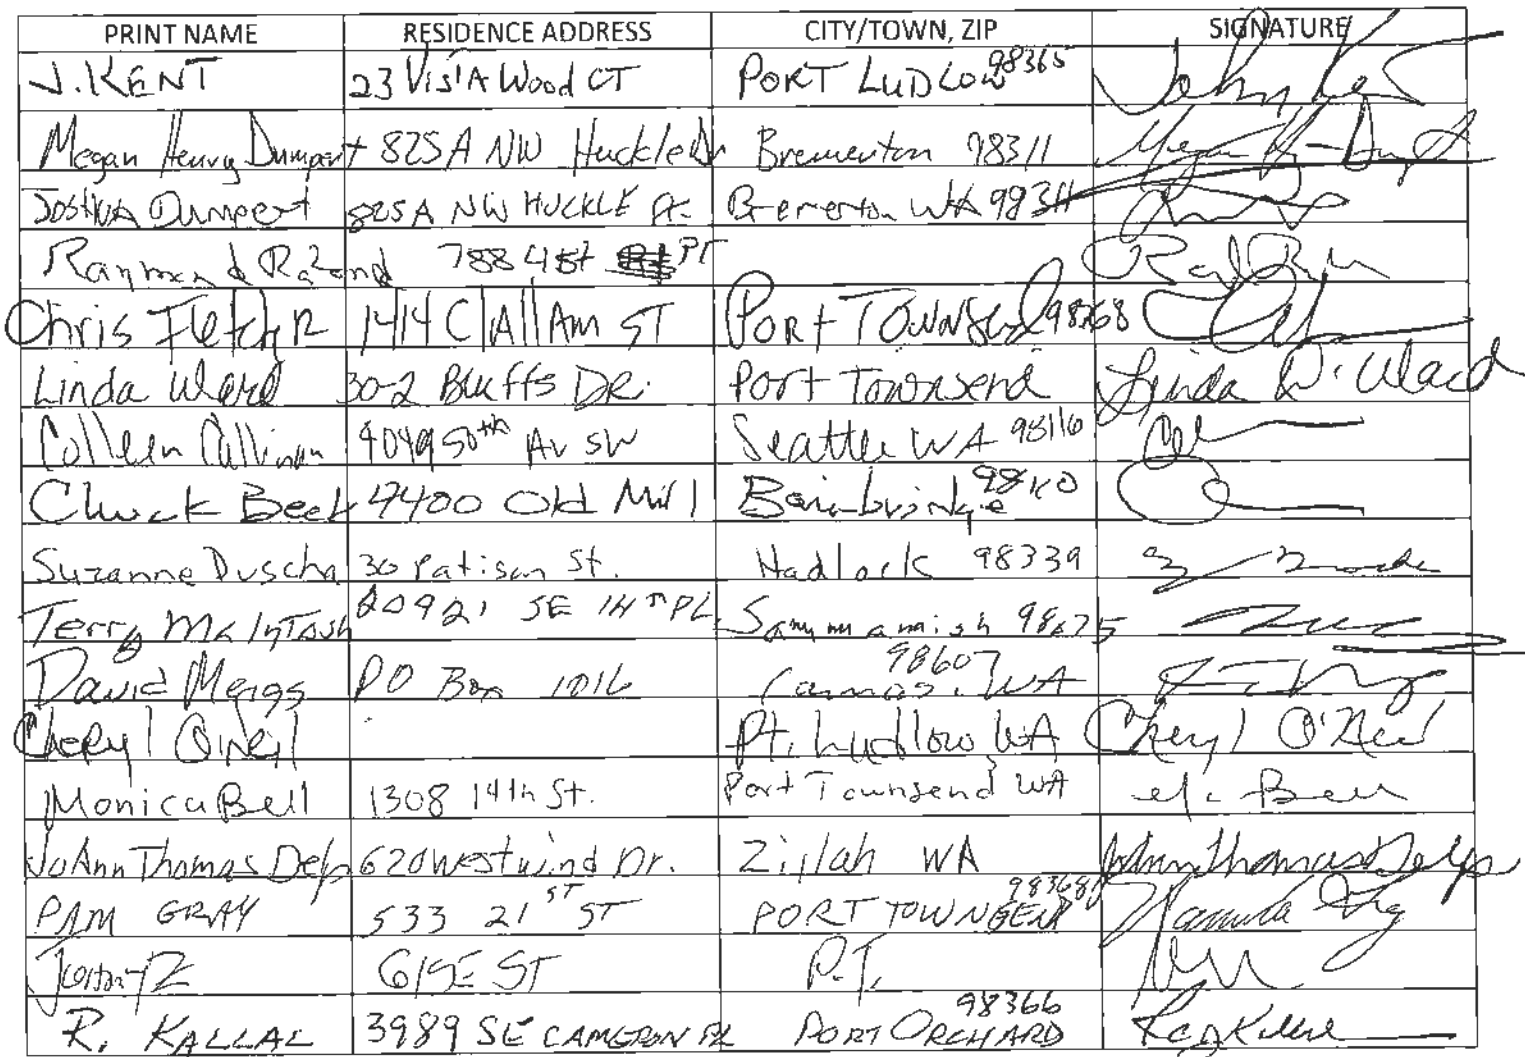 PRINT NAME RESIDENCE ADDRESS CITY/TOWN, ZIP SIGNATURE
J. KENT 23 VISTA Wood CT PORT LUDLOW 98365 John Kent
Megan Henry Dumpert 825A NW Huckle Dr Bremerton 98311
Joshua Dumpert 825A NW HUCKLE Dr. Bremerton WA 98311
Raymond 788 41st Pl
Chris Fletcher 1414 ClAllAm ST PORT TOWNSend 98368
Linda Ward 30-2 Bluffs DR. Port Townsend Linda D. Ward
Colleen Cullinan 4049 50th Av SW Seattle WA 98116
Chuck Beek 4400 Old Mill Bainbridge 98110
Suzanne Duscha 30 Patison St. Hadlock 98339
Terry McIntosh 20921 SE 1HTH PL Sammamish 98075
David Meigs PO Box 1016 Camas, WA 98607
Cheryl O'Neil Pt. Ludlow WA Cheryl O'Neil
Monica Bell 1308 14th St. Port Townsend WA M. Bell
JoAnn Thomas Delp 620 Westwind Dr. Zillah WA JoAnn Thomas Delp
PAM GRAY 533 21ST ST PORT TOWNSEND 98368 Pamela Gray
615E ST P.T.
R. KALLAL 3989 SE CAMERON PL PORT ORCHARD 98366